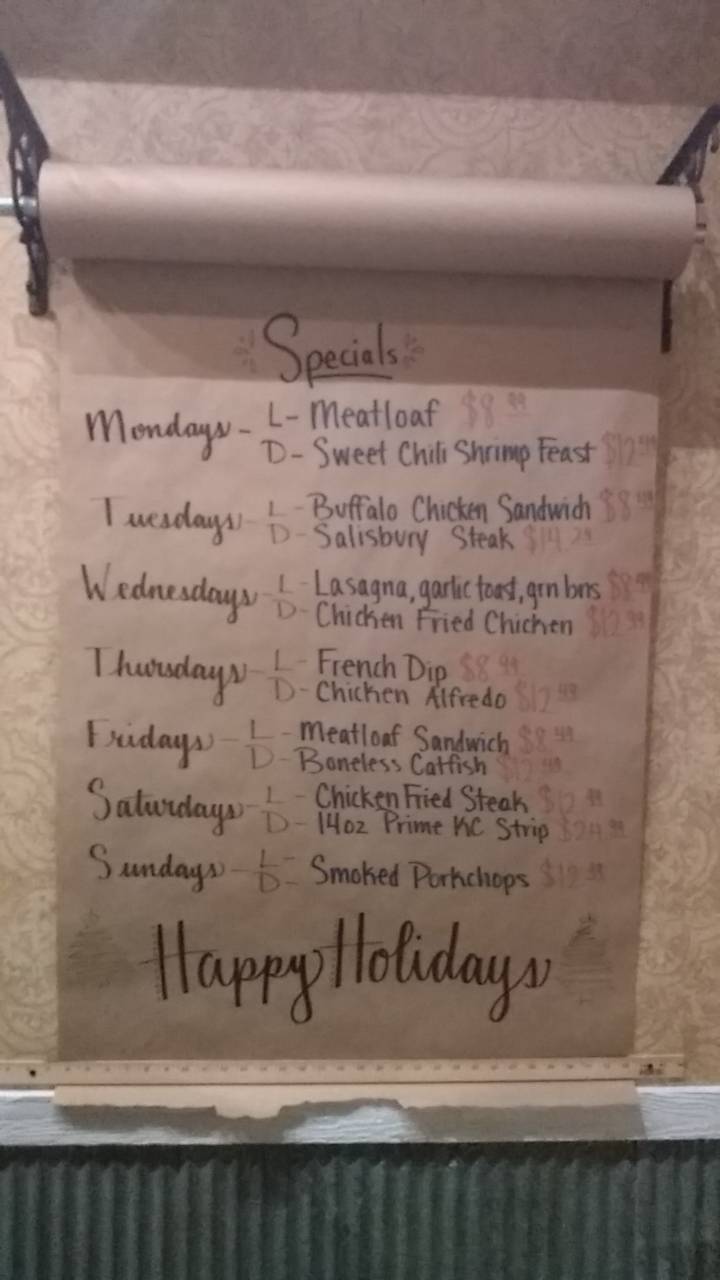 Specials
Mondays - L - Meatloaf $8.99
D - Sweet Chili Shrimp Feast $12.99
Tuesdays - L - Buffalo Chicken Sandwich $8.99
D - Salisbury Steak
Wednesdays - L - Lasagna, garlic toast, grn bns $8.99
D - Chicken Fried Chicken $12.99
Thursdays - L - French Dip $8.99
D - Chicken Alfredo $12.99
Fridays - L - Meatloaf Sandwich $8.99
D - Boneless Catfish $12.99
Saturdays - L - Chicken Fried Steak $12.99
D - 14oz Prime KC Strip $24.99
Sundays - L -
D - Smoked Porkchops
Happy Holidays